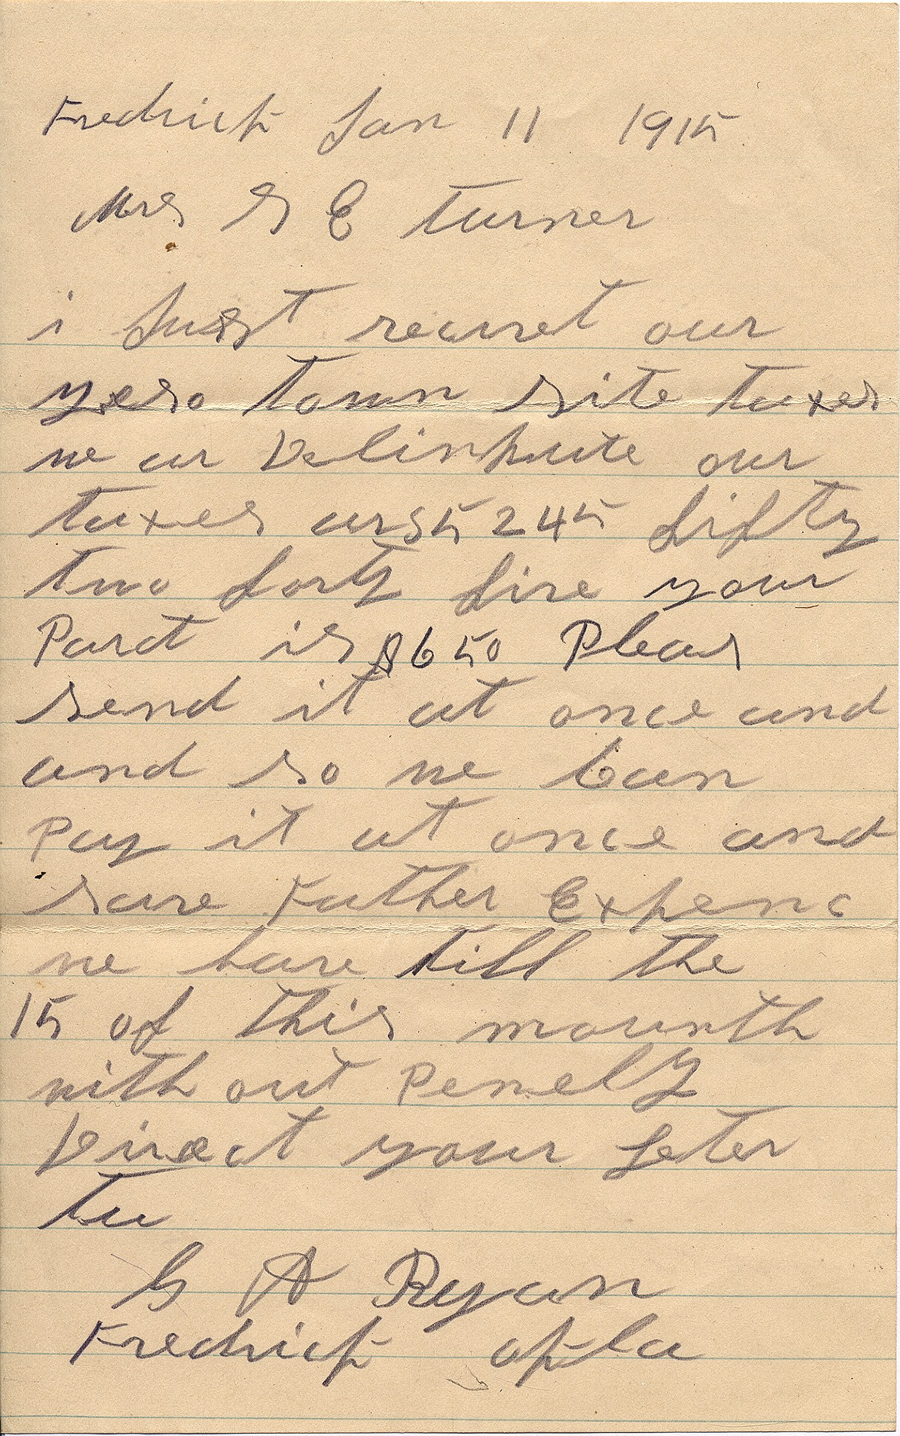 Fredrick Jan 11 1915
Mrs G E turner
i Just receivet our
town site taxes
we ar Delinkute our
taxes ar $5245 fifty
two forty five your
Part is $650 Pleas
send it at once and
and so we Can
Pay it at once and
save Father Expenc
we have till the
15 of this mounth
with out Penelty
Direct your Leter
tu
G A Ryan
Fredrick okla